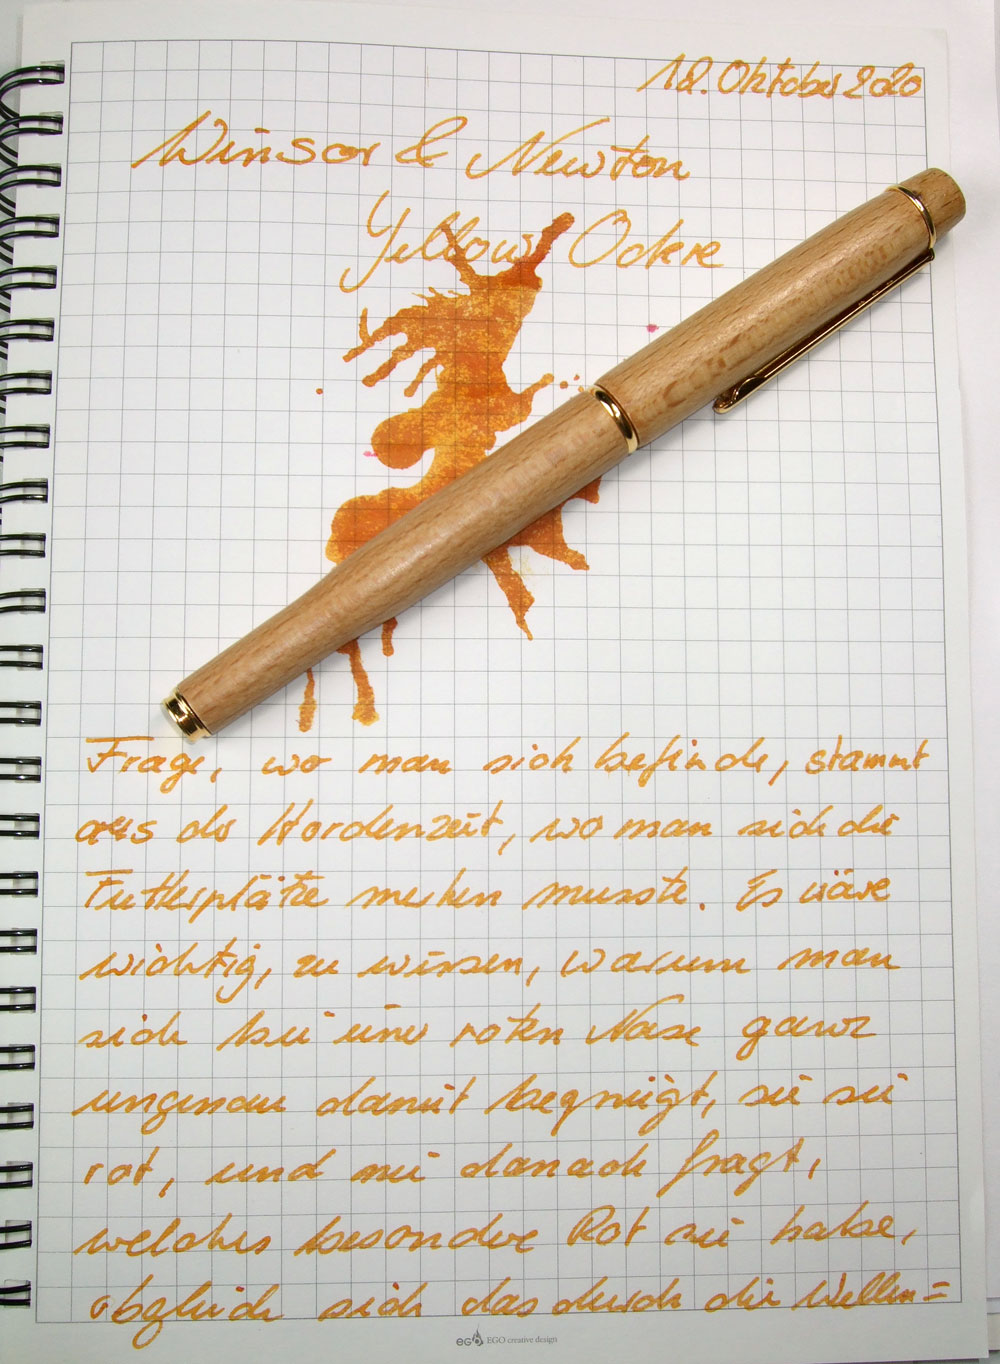 18. Oktober 2020
Winsor & Newton
Yellow Ockre
Frage, wo man sich befinde, stammt
aus der Hordenzeit, wo man sich die
Futterplätze merken musste. Es wäre
wichtig, zu wissen, warum man
sich bei einer roten Nase ganz
ungenau damit begnügt, sie sei
rot, und nie danach fragt,
welches besondere Rot sie habe,
obgleich sich das durch die Wellen=
EGO EGO creative design